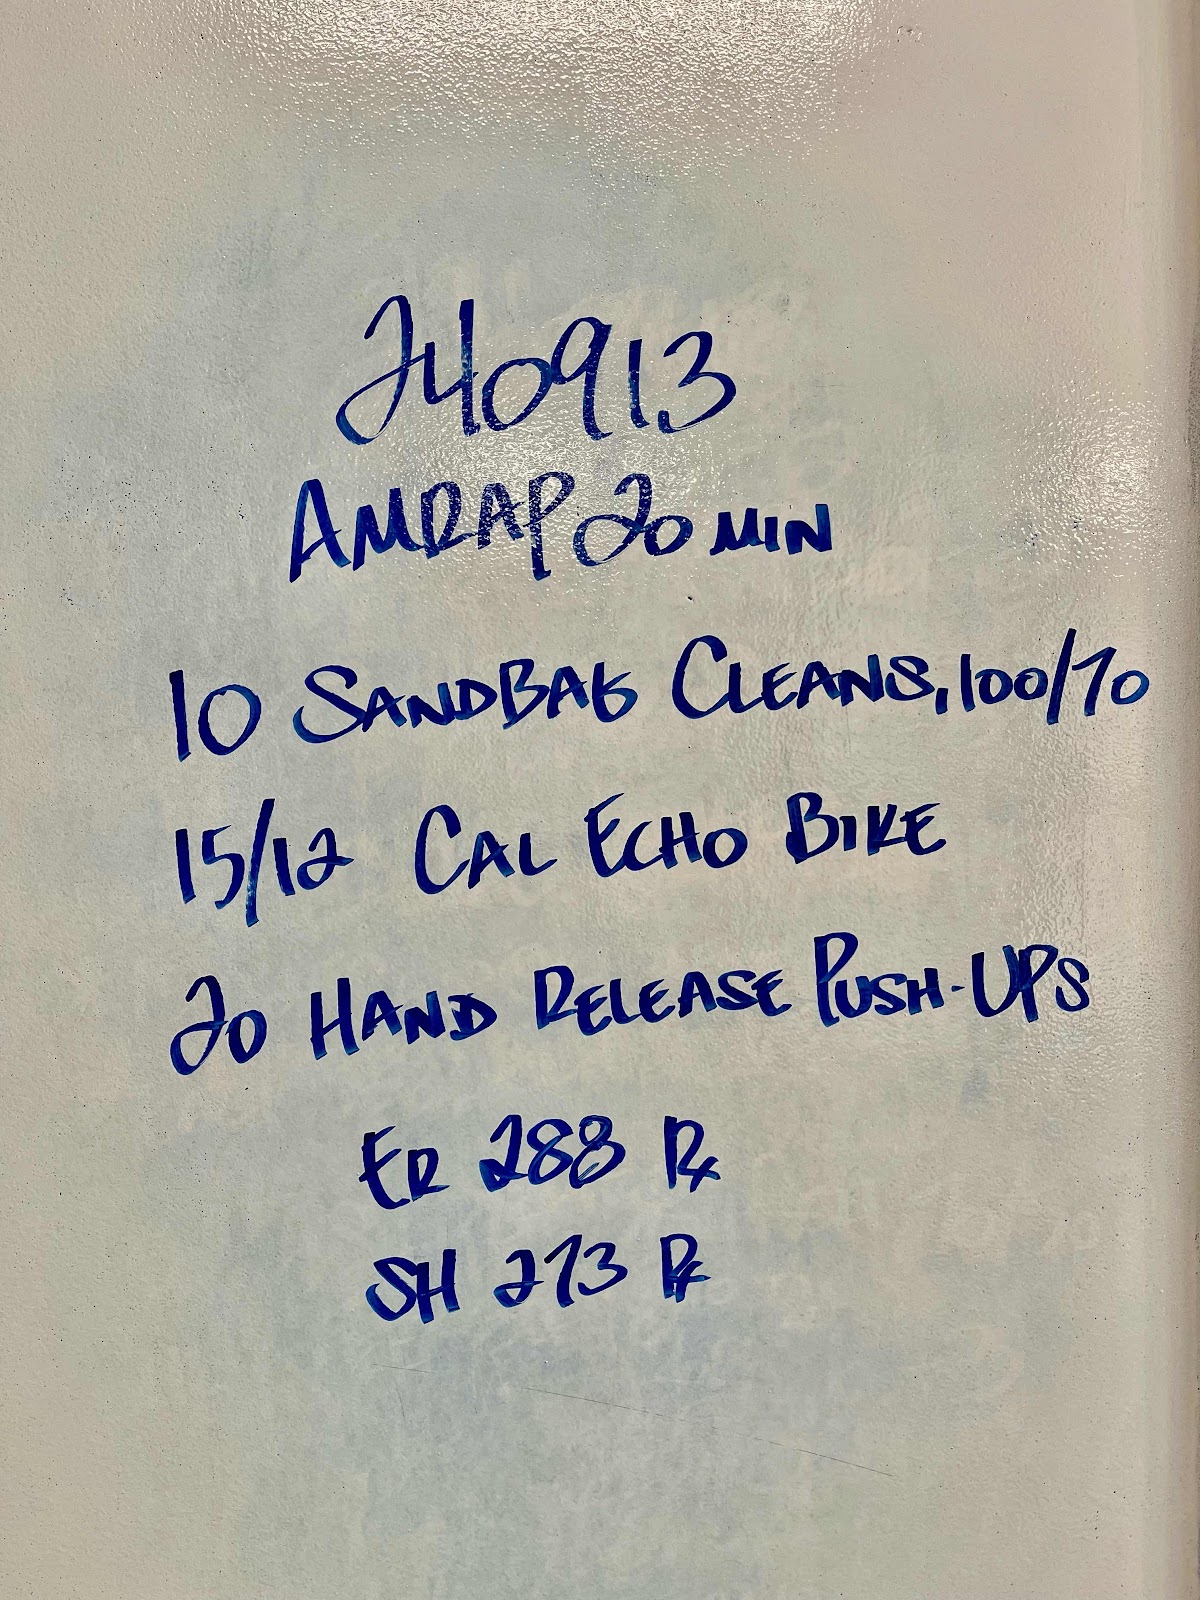 240913
AMRAP 20 MIN
10 SANDBAG CLEANS, 100/70
15/12 CAL ECHO BIKE
20 HAND RELEASE PUSH-UPS
ER 288 Rx
SH 273 Rx